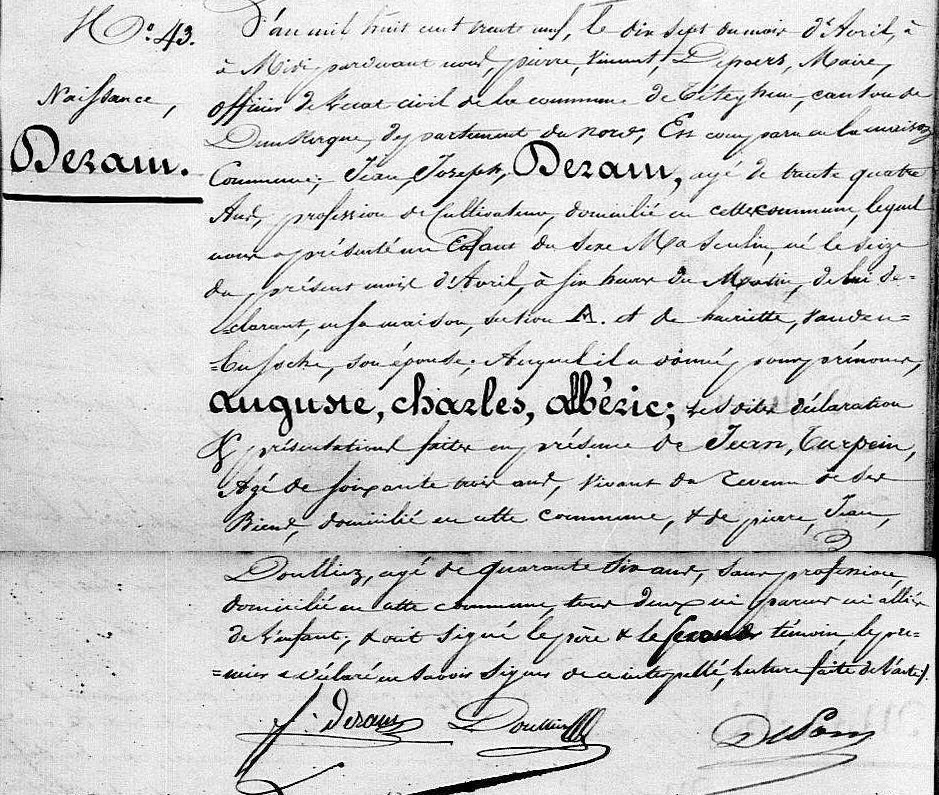 N.° 43.
Naissance,
Deram.
L'an mil huit cent trente neuf, le dix sept du mois d'Avril, à
à Midi, pardevant nous, pierre, Vincent, Depoers, Maire,
officier de l'état civil de la commune de Téteghem, canton de
Dunkerque, département du nord, Est comparu en la maison
Commune, Jean, Joseph, Deram, agé de trente quatre
Ans, profession de Cultivateur, domicilié en cette commune, lequel
nous a présenté un Enfant du sexe Masculin, né le seize
du présent mois d'Avril, à six heures du Matin, de lui dé-
-clarant, en sa maison, section A. et de henriette, Vanden-
=bussche, son épouse; Auquel il a donné, pour prénoms,
auguste, charles, albéric; les dites déclaration
& présentation faites en présence de Jean, Turpein,
Agé de soixante trois ans, Vivant du revenu de ses
Biens, domicilié en cette commune, & de pierre, Jean,
Doulliez, agé de quarante Six ans, sans profession,
domicilié en cette commune, tous deux ni parens ni alliés
de l'enfant; & ont signé le père & le second témoin, le pre-
=mier a déclaré ne savoir signer de ce interpellé, lecture faite de l'acte.
J. deram Doulliez